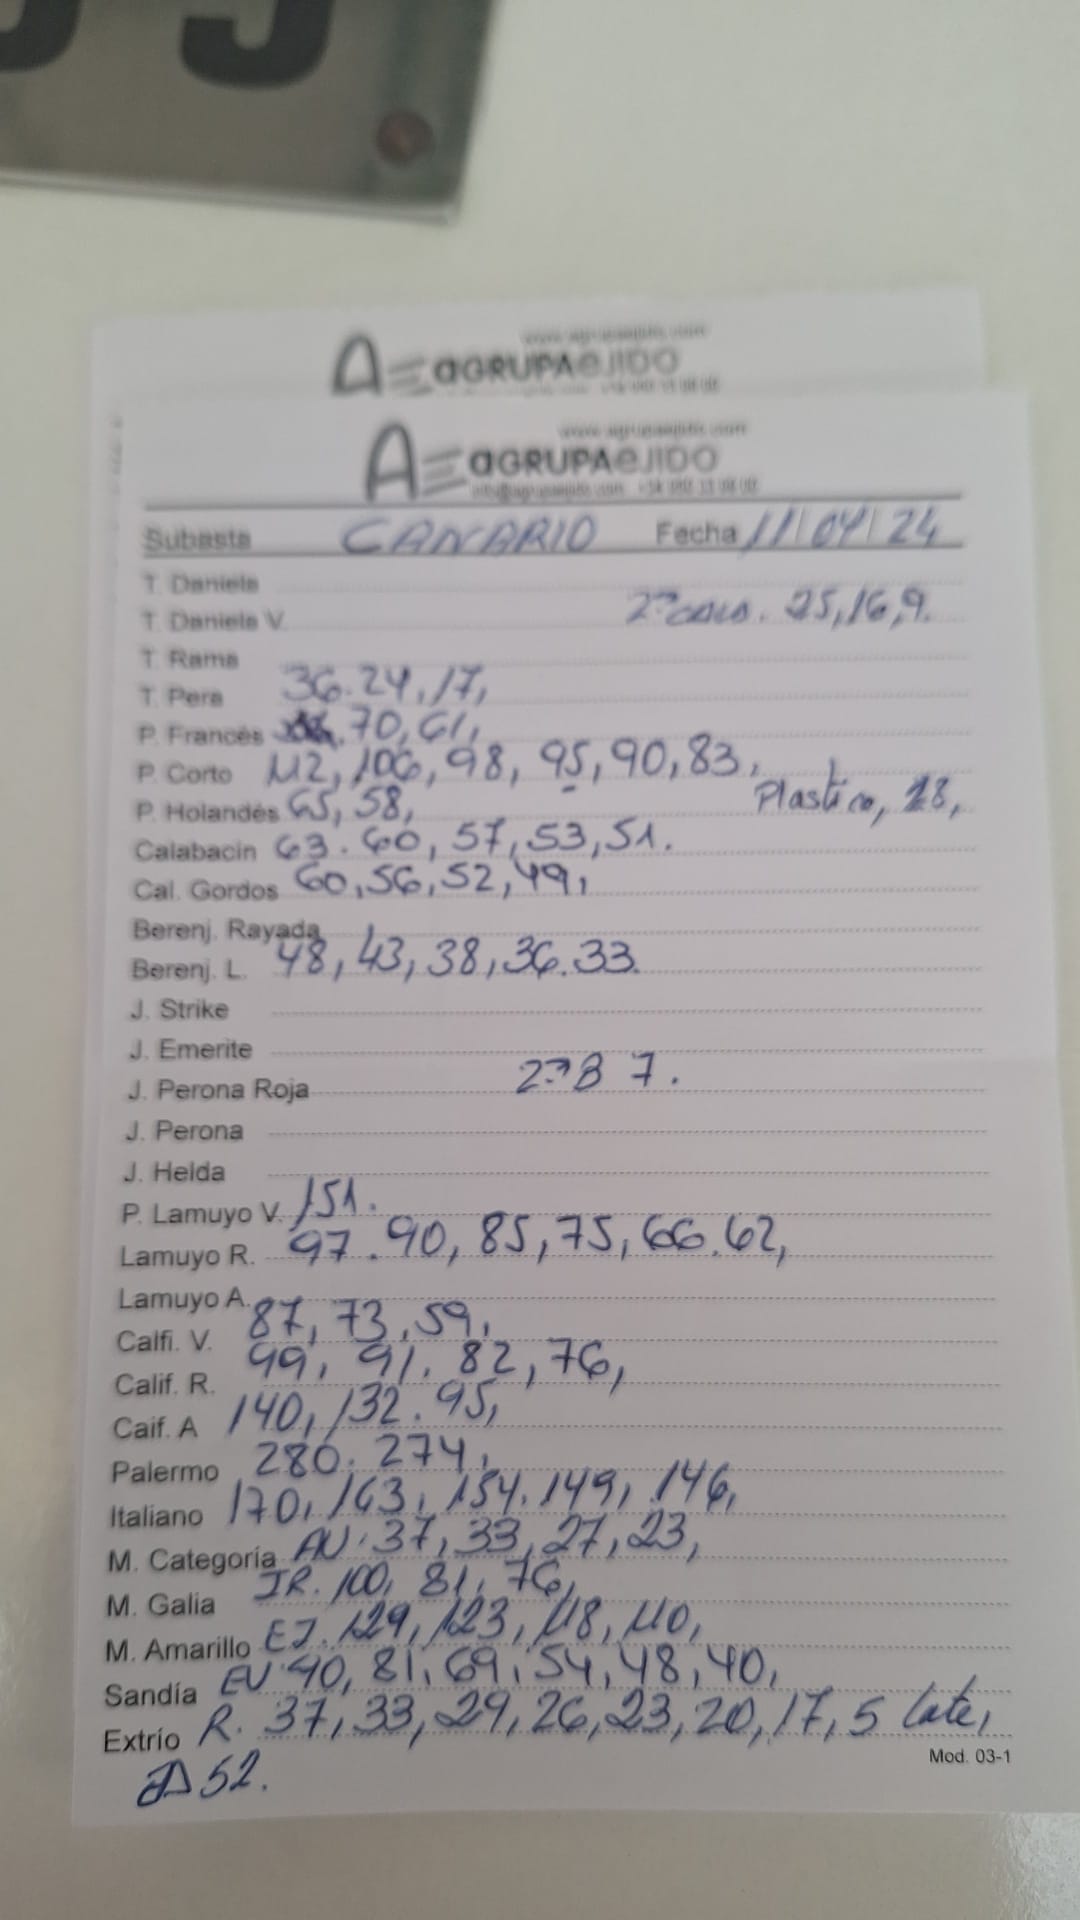 www.agrupaejido.com
AGRUPAEJIDO
www.agrupaejido.com
AGRUPAEJIDO
Subasta CANARIO Fecha 11/04/24
T. Daniela
T. Daniela V. 2ª CALO. 25,16,9.
T. Rama
T. Pera 36.24,17,
P. Francés 70,61,
P. Corto 112,106,98,95,90,83,
P. Holandés 65,58, Plastico, 28,
Calabacín 63.60,57,53,51.
Cal. Gordos 60,56,52,49,
Berenj. Rayada
Berenj. L. 48,43,38,36.33.
J. Strike
J. Emerite
J. Perona Roja 2ª B 7.
J. Perona
J. Helda
P. Lamuyo V. 151.
Lamuyo R. 97.90,85,75,66.62,
Lamuyo A.
Calfi. V. 87,73,59,
Calif. R. 99,91.82,76,
Caif. A 140,132.95,
Palermo 280.274,
Italiano 170,163,154.149,146,
M. Categoría AU.37,33,27,23,
M. Galia IR.100,81,76,
M. Amarillo EJ.129,123,118,110,
Sandía EU 90,81,69,54,48,40,
Extrío R. 37,33,29,26,23,20,17,5 Late,
Mod. 03-1
52.